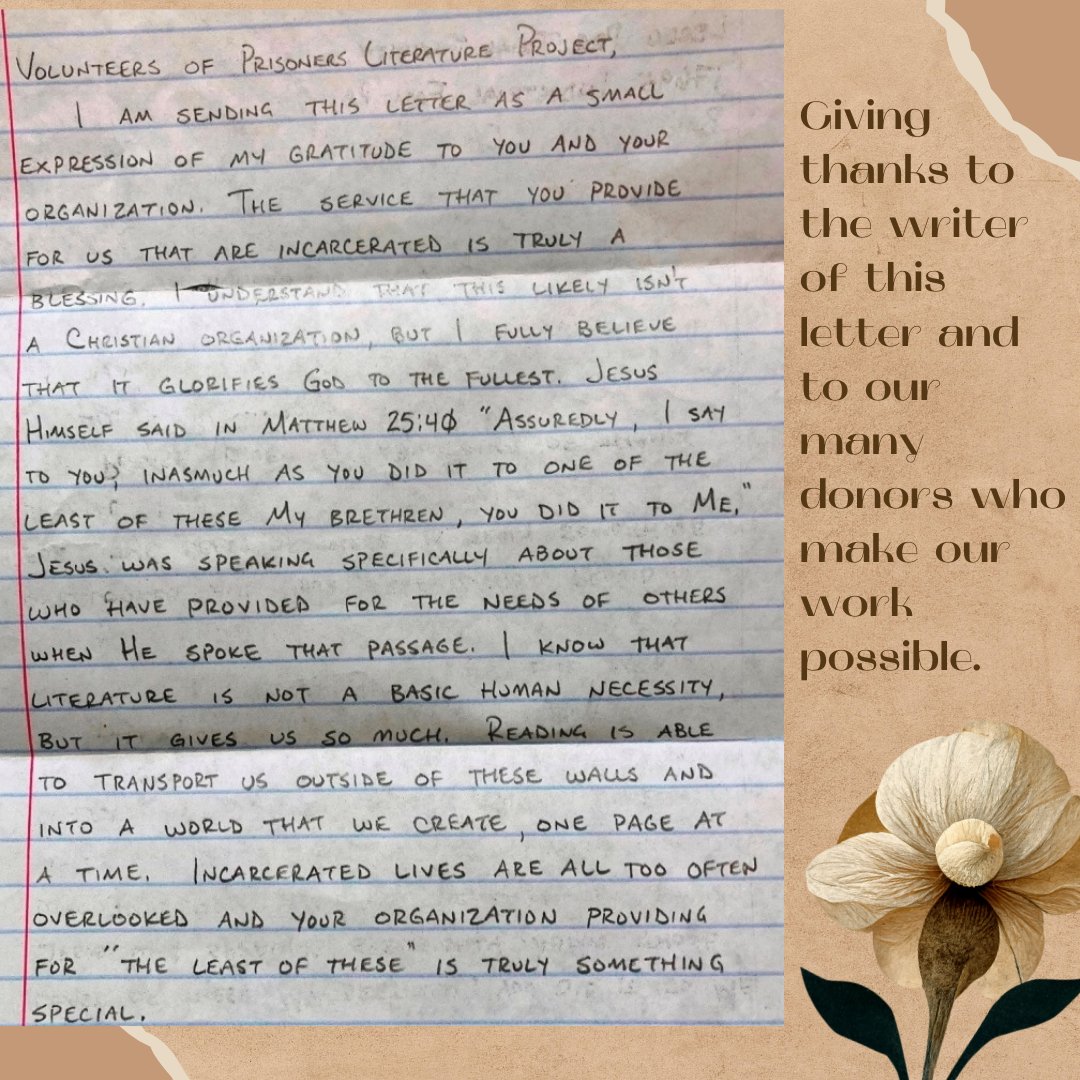 Volunteers of Prisoners Literature Project,
I am sending this letter as a small
expression of my gratitude to you and your
organization. The service that you provide
for us that are incarcerated is truly a
blessing. I understand that this likely isn't
a Christian organization, but I fully believe
that it glorifies God to the fullest. Jesus
Himself said in Matthew 25:40 "Assuredly, I say
to you, inasmuch as you did it to one of the
least of these My brethren, you did it to Me."
Jesus was speaking specifically about those
who have provided for the needs of others
when He spoke that passage. I know that
literature is not a basic human necessity,
but it gives us so much. Reading is able
to transport us outside of these walls and
into a world that we create, one page at
a time. Incarcerated lives are all too often
overlooked and your organization providing
for "the least of these" is truly something
special.
Giving
thanks to
the writer
of this
letter and
to our
many
donors who
make our
work
possible.